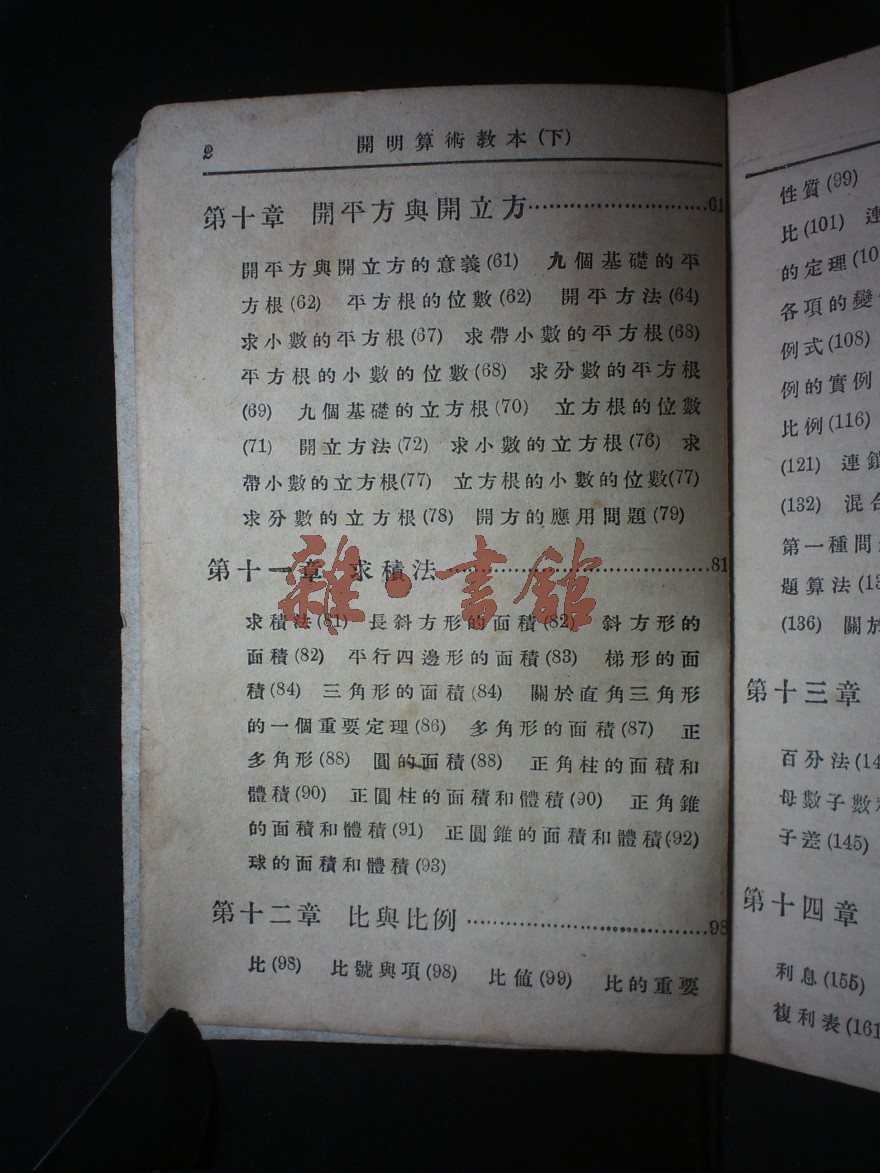 2
開明算術教本(下)
第十章 開平方與開立方……………………61
開平方與開立方的意義(61) 九個基礎的平
方根(62) 平方根的位數(62) 開平方法(64)
求小數的平方根(67) 求帶小數的平方根(68)
平方根的小數的位數(68) 求分數的平方根
(69) 九個基礎的立方根(70) 立方根的位數
(71) 開立方法(72) 求小數的立方根(76) 求
帶小數的立方根(77) 立方根的小數的位數(77)
求分數的立方根(78) 開方的應用問題(79)
第十一章 求積法……………………………81
求積法(81) 長斜方形的面積(82) 斜方形的
面積(82) 平行四邊形的面積(83) 梯形的面
積(84) 三角形的面積(84) 關於直角三角形
的一個重要定理(86) 多角形的面積(87) 正
多角形(88) 圓的面積(88) 正角柱的面積和
體積(90) 正圓柱的面積和體積(90) 正角錐
的面積和體積(91) 正圓錐的面積和體積(92)
球的面積和體積(93)
第十二章 比與比例…………………………98
比(98) 比號與項(98) 比值(99) 比的重要
雜·書館
性質(99)
比(101) 連
的定理(10
各項的變
例式(108)
例的實例
比例(116)
(121) 連鎖
(132) 混合
第一種問
題算法(13
(136) 關於
第十三章
百分法(14
母數子數
子差(145)
第十四章
利息(155)
複利表(161